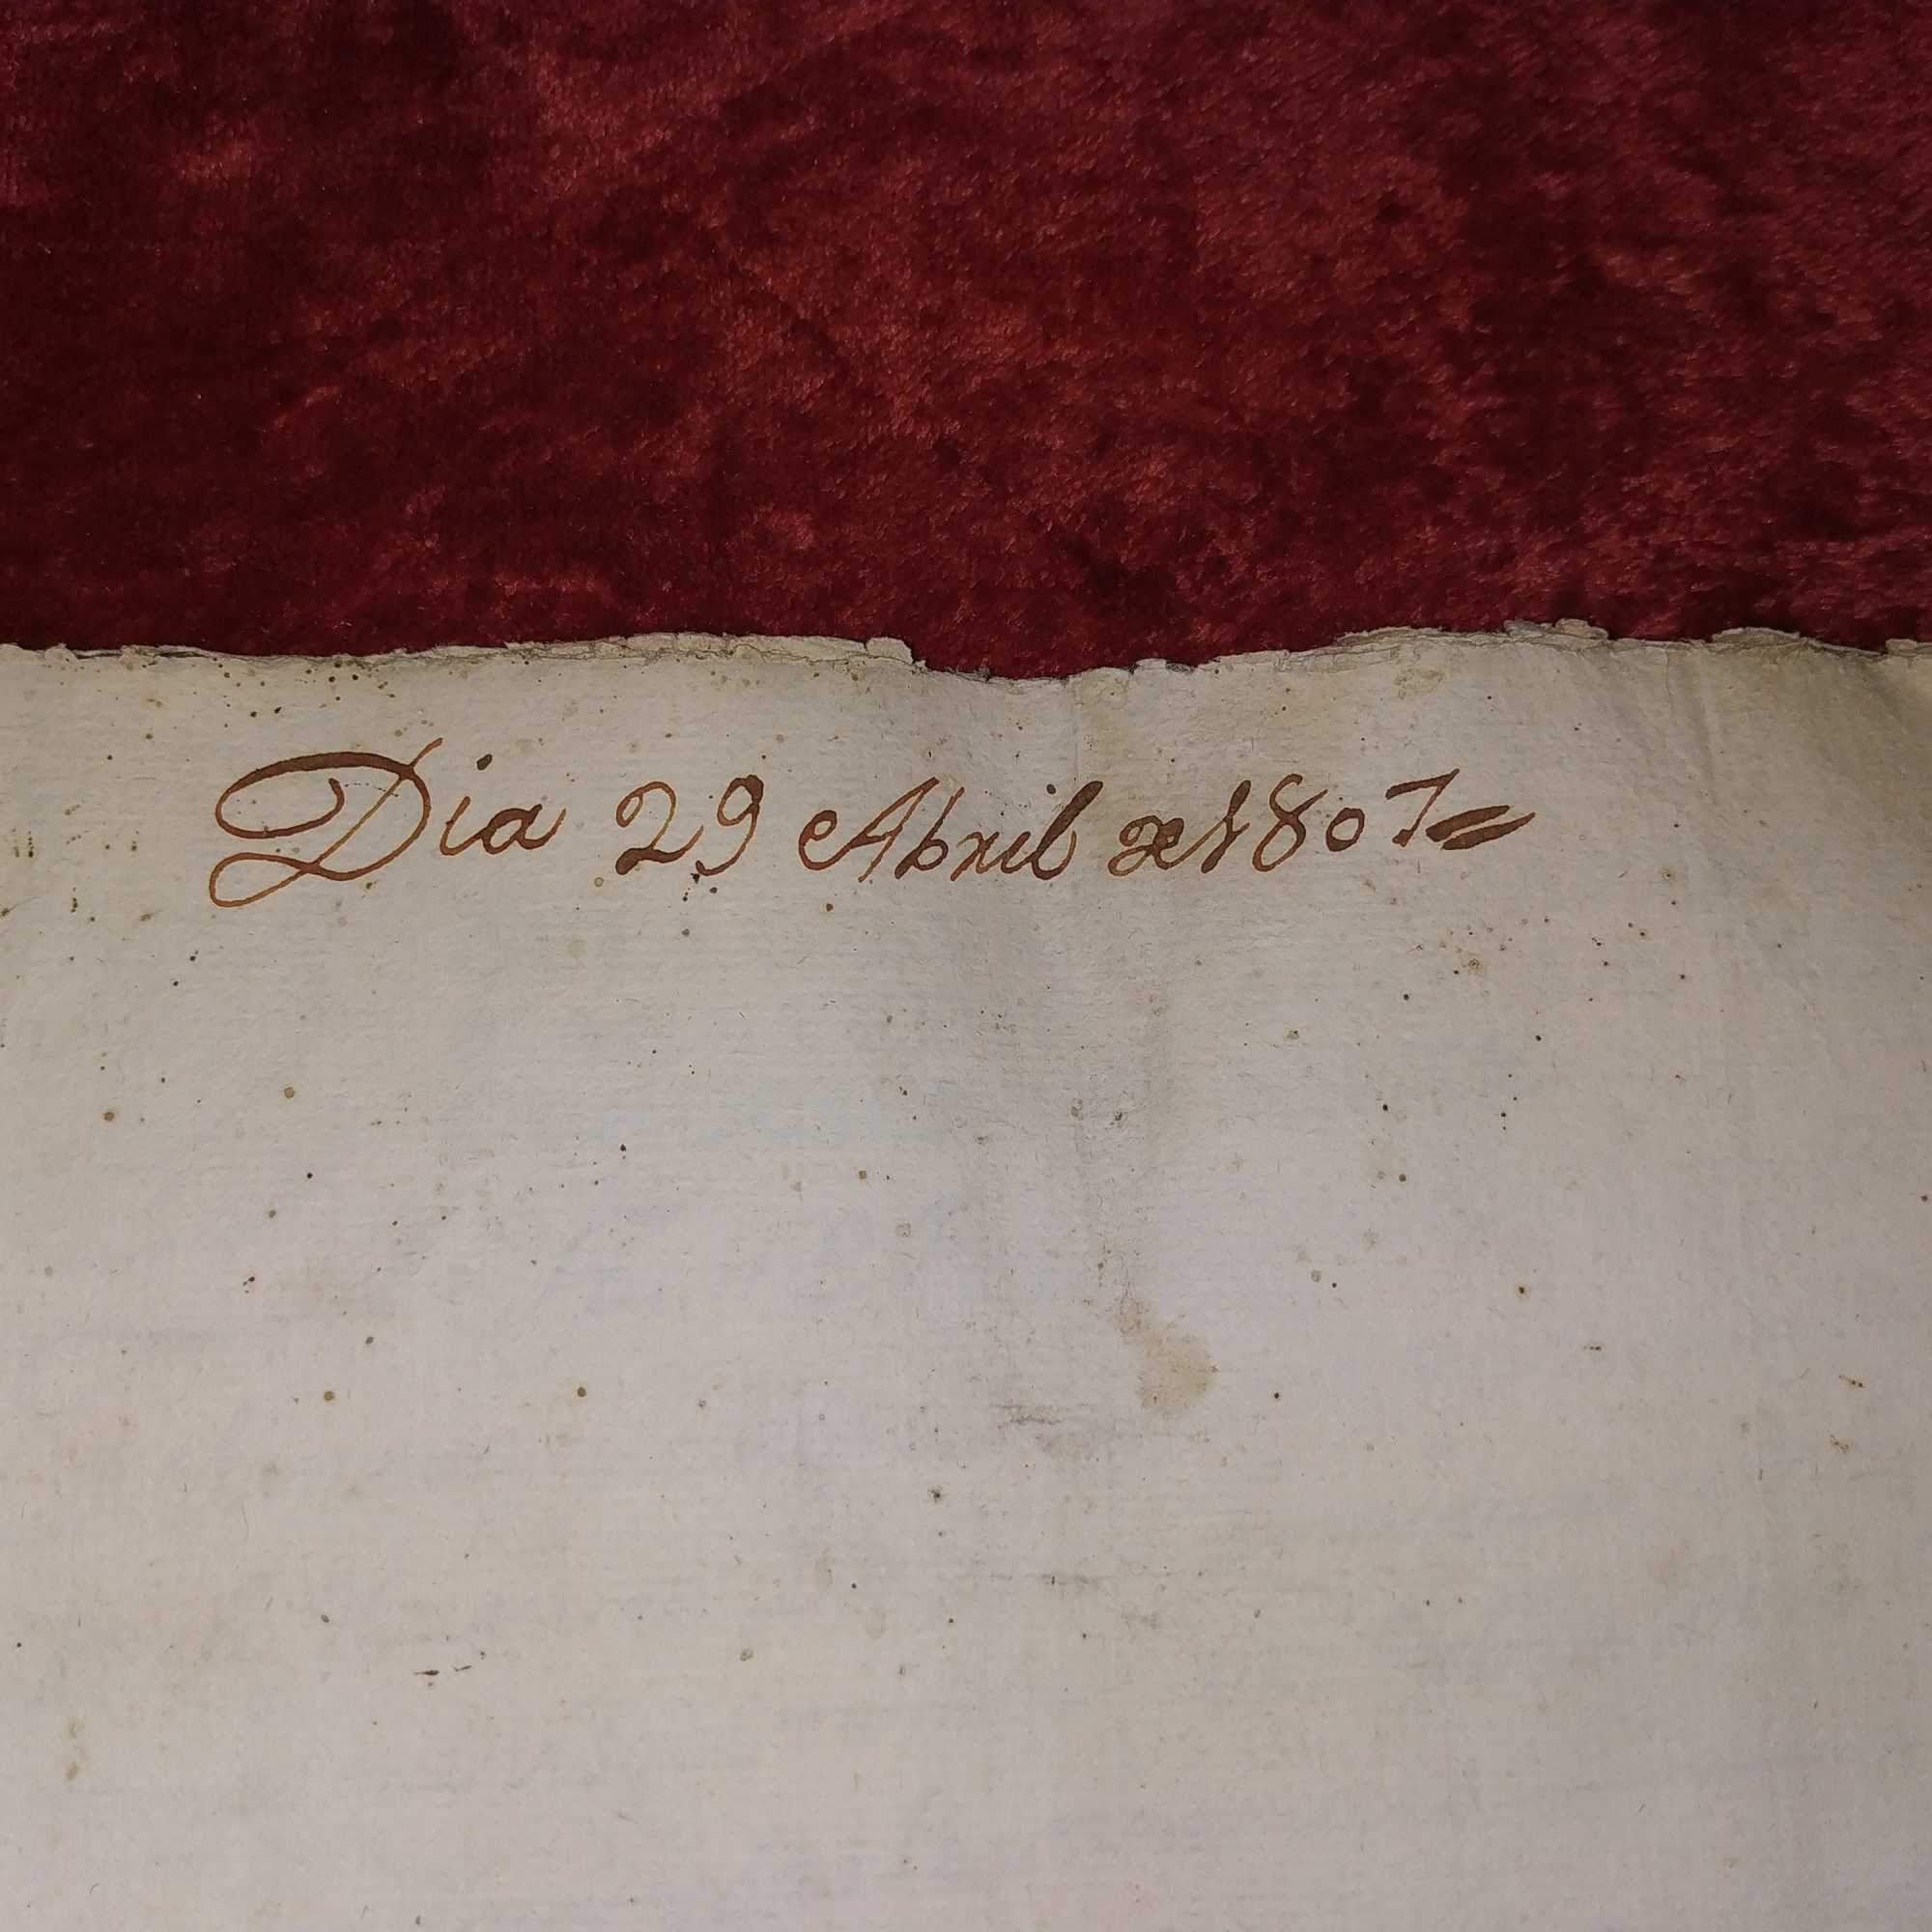 Dia 29 Abril de 1807=